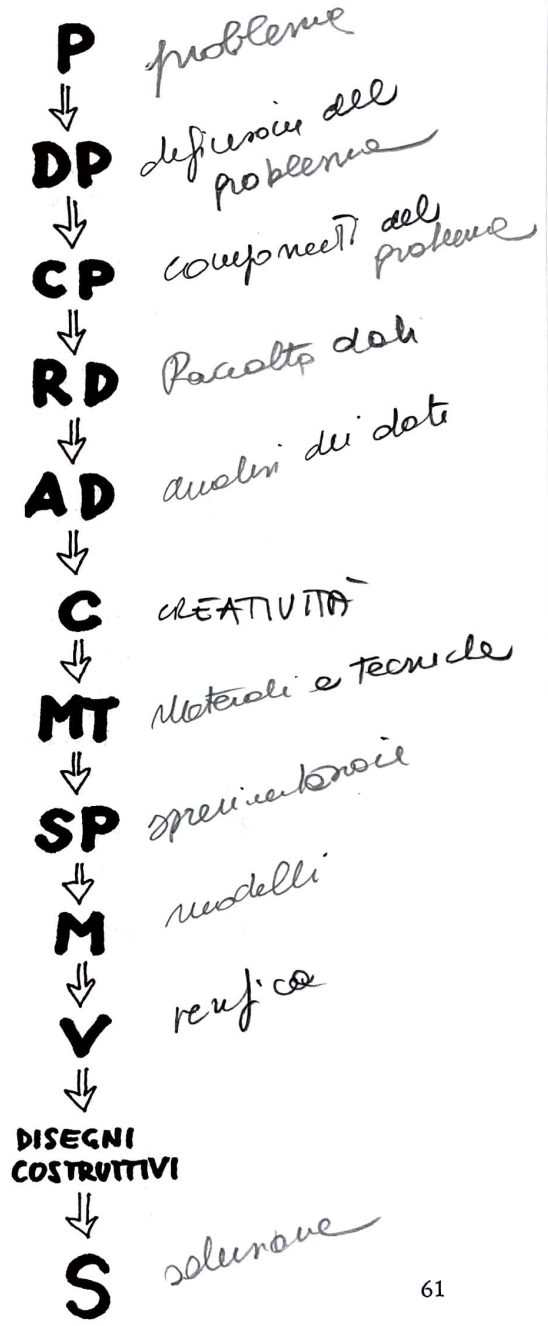 P problema
DP definizione del
problema
CP componenti del
problema
RD Raccolta dati
AD analisi dei dati
C CREATIVITÀ
MT Materiali e Tecniche
SP sperimentazione
M modelli
V verifica
DISEGNI
COSTRUTTIVI
S soluzione
61